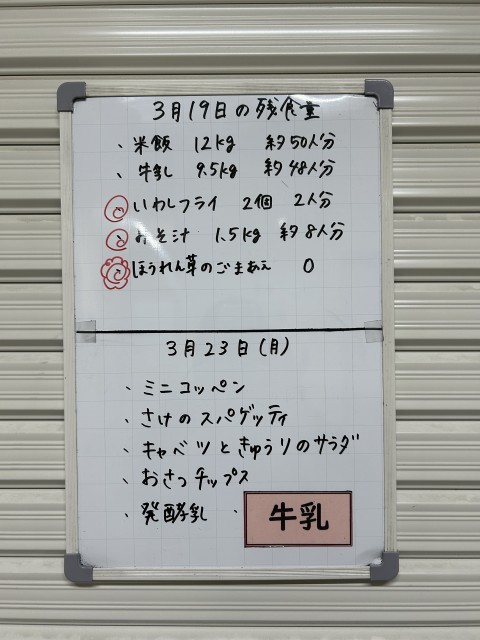 3月19日の残食量
、米飯 12kg 約50人分
、牛乳 9.5kg 約48人分
、いわしフライ 2個 2人分
、みそ汁 1.5kg 約8人分
、ほうれん草のごまあえ 0
3月23日(月)
、ミニコッペン
、さけのスパゲッティ
、キャベツときゅうりのサラダ
、おさつチップス
、発酵乳 、 牛乳